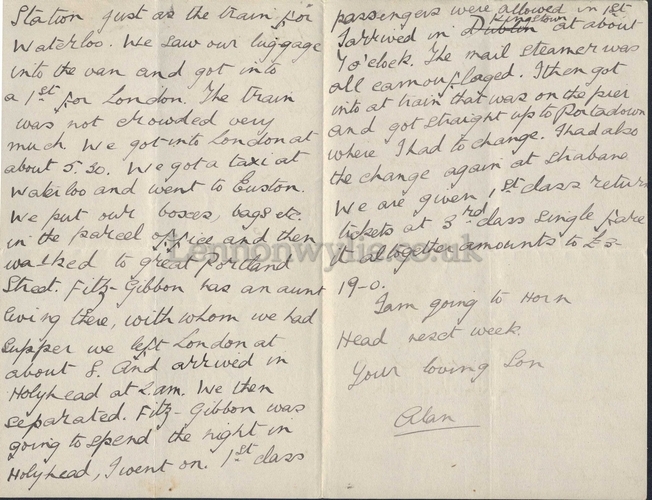 Station just as the train for
Waterloo. We saw our luggage
into the van and got into
a 1st for London. The train
was not crowded very
much. We got into London at
about 5.30. We got a taxi at
Waterloo and went to Euston.
We put our boxes, bags etc.
in the parcel office and then
walked to great Portland
Street. Fitz-Gibbon has an aunt
living there, with whom we had
supper we left London at
about 8. And arrived in
Holyhead at 2.am. We then
separated. Fitz-Gibbon was
going to spend the night in
Holyhead, I went on. 1st class
passengers were allowed in 1st
I arrived in Dublin Kingstown at about
7 o'clock. The mail steamer was
all camouflaged. I then got
into at train that was on the pier
and got straight up to Portadown
where I had to change. I had also
the change again at Strabane
We are given 1st class return
tickets at 3rd class single fare
it altogether amounts to £3-
19-0.
I am going to Horn
Head next week.
Your loving Son
Alan
Lennonwylie.co.uk